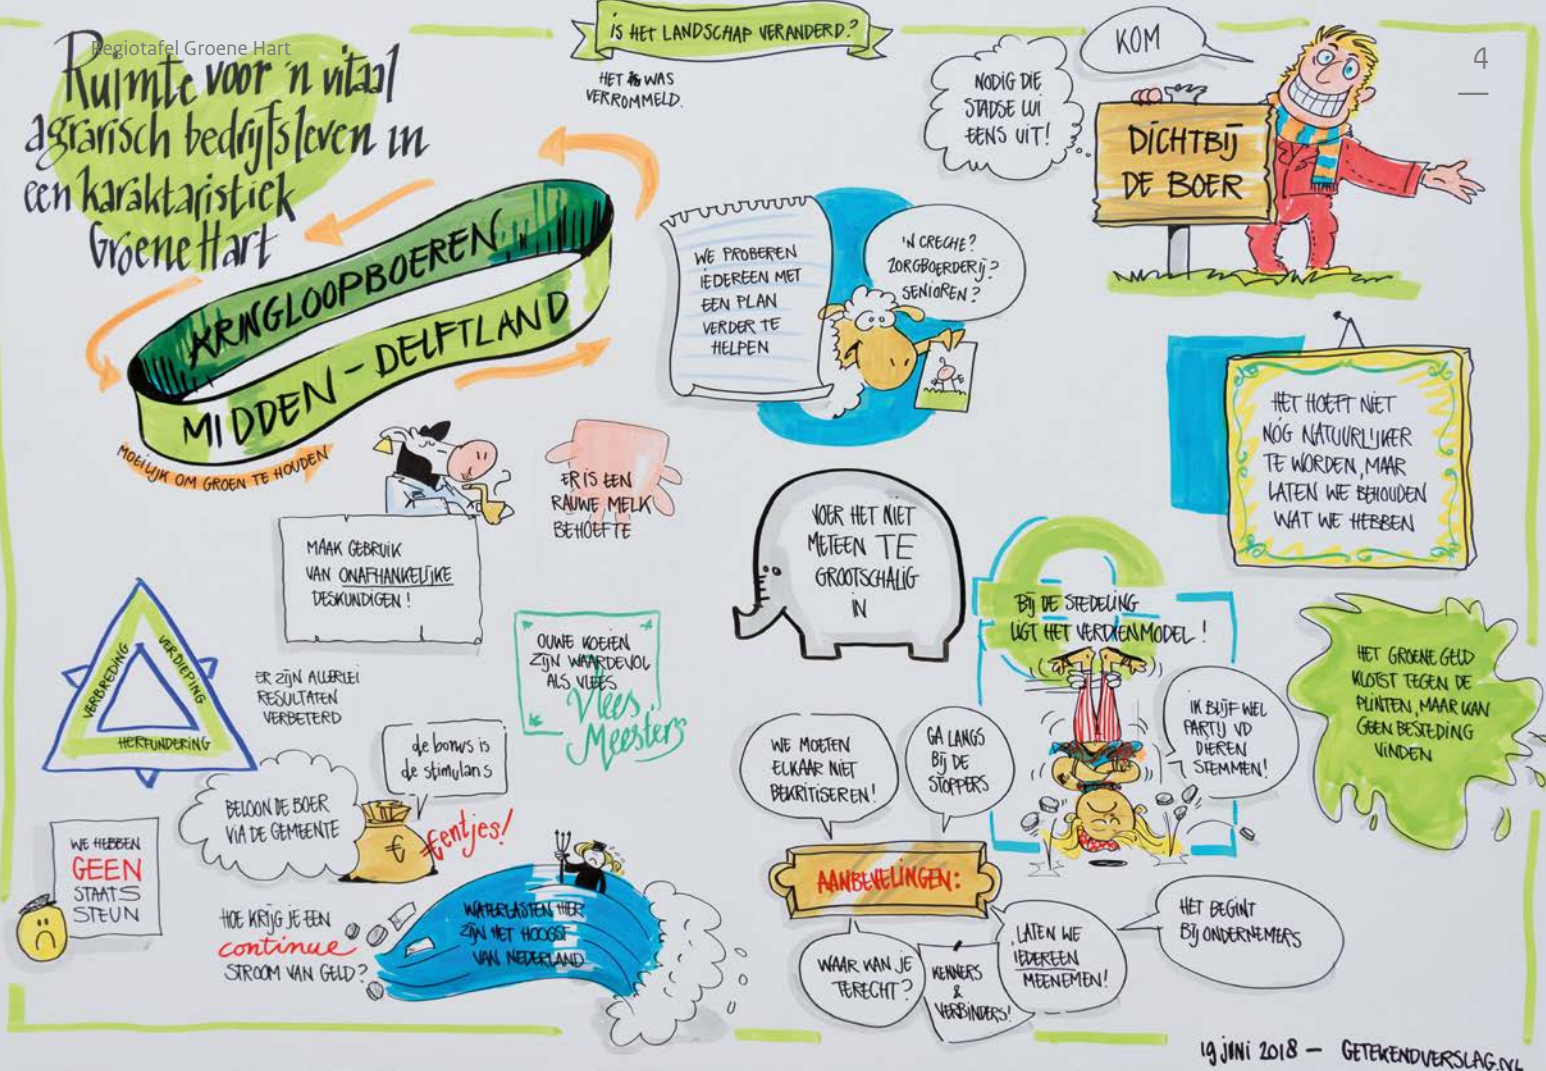 Regiotafel Groene Hart
4
Ruimte voor 'n vitaal
agrarisch bedrijfsleven in
een karaktaristiek
Groene Hart
IS HET LANDSCHAP VERANDERD?
HET WAS
VERROMMELD.
NODIG DIE
STADSE LUI
EENS UIT!
KOM
DICHTBIJ
DE BOER
KRINGLOOPBOEREN
MIDDEN-DELFTLAND
MOEILIJK OM GROEN TE HOUDEN
WE PROBEREN
IEDEREEN MET
EEN PLAN
VERDER TE
HELPEN
'N CRECHE?
ZORGBOERDERIJ?
SENIOREN?
HET HOEFT NIET
NÓG NATUURLIJKER
TE WORDEN, MAAR
LATEN WE BEHOUDEN
WAT WE HEBBEN
MAAK GEBRUIK
VAN ONAFHANKELIJKE
DESKUNDIGEN!
ER IS EEN
RAUWE MELK
BEHOEFTE
VOER HET NIET
METEEN TE
GROOTSCHALIG
IN
BIJ DE STEDELING
LIGT HET VERDIENMODEL!
VERBREDING
VERDIEPING
HERFUNDERING
ER ZIJN ALLERLEI
RESULTATEN
VERBETERD
OUWE KOEIEN
ZIJN WAARDEVOL
ALS VLEES
Vlees
Meesters
HET GROENE GELD
KLOTST TEGEN DE
PLINTEN, MAAR KAN
GEEN BESTEDING
VINDEN
de bonus is
de stimulans
BELOON DE BOER
VIA DE GEMEENTE
€
€entjes!
WE MOETEN
ELKAAR NIET
BEKRITISEREN!
GA LANGS
BIJ DE
STOPPERS
IK BLIJF WEL
PARTIJ VD
DIEREN
STEMMEN!
WE HEBBEN
GEEN
STAATS
STEUN
HOE KRIJG JE EEN
continue
STROOM VAN GELD?
WATERLASTEN HIER
ZIJN HET HOOGST
VAN NEDERLAND
AANBEVELINGEN:
WAAR KAN JE
TERECHT?
KENNERS
&
VERBINDERS!
LATEN WE
IEDEREEN
MEENEMEN!
HET BEGINT
BIJ ONDERNEMERS
19 juni 2018 – GETEKENDVERSLAG.NL